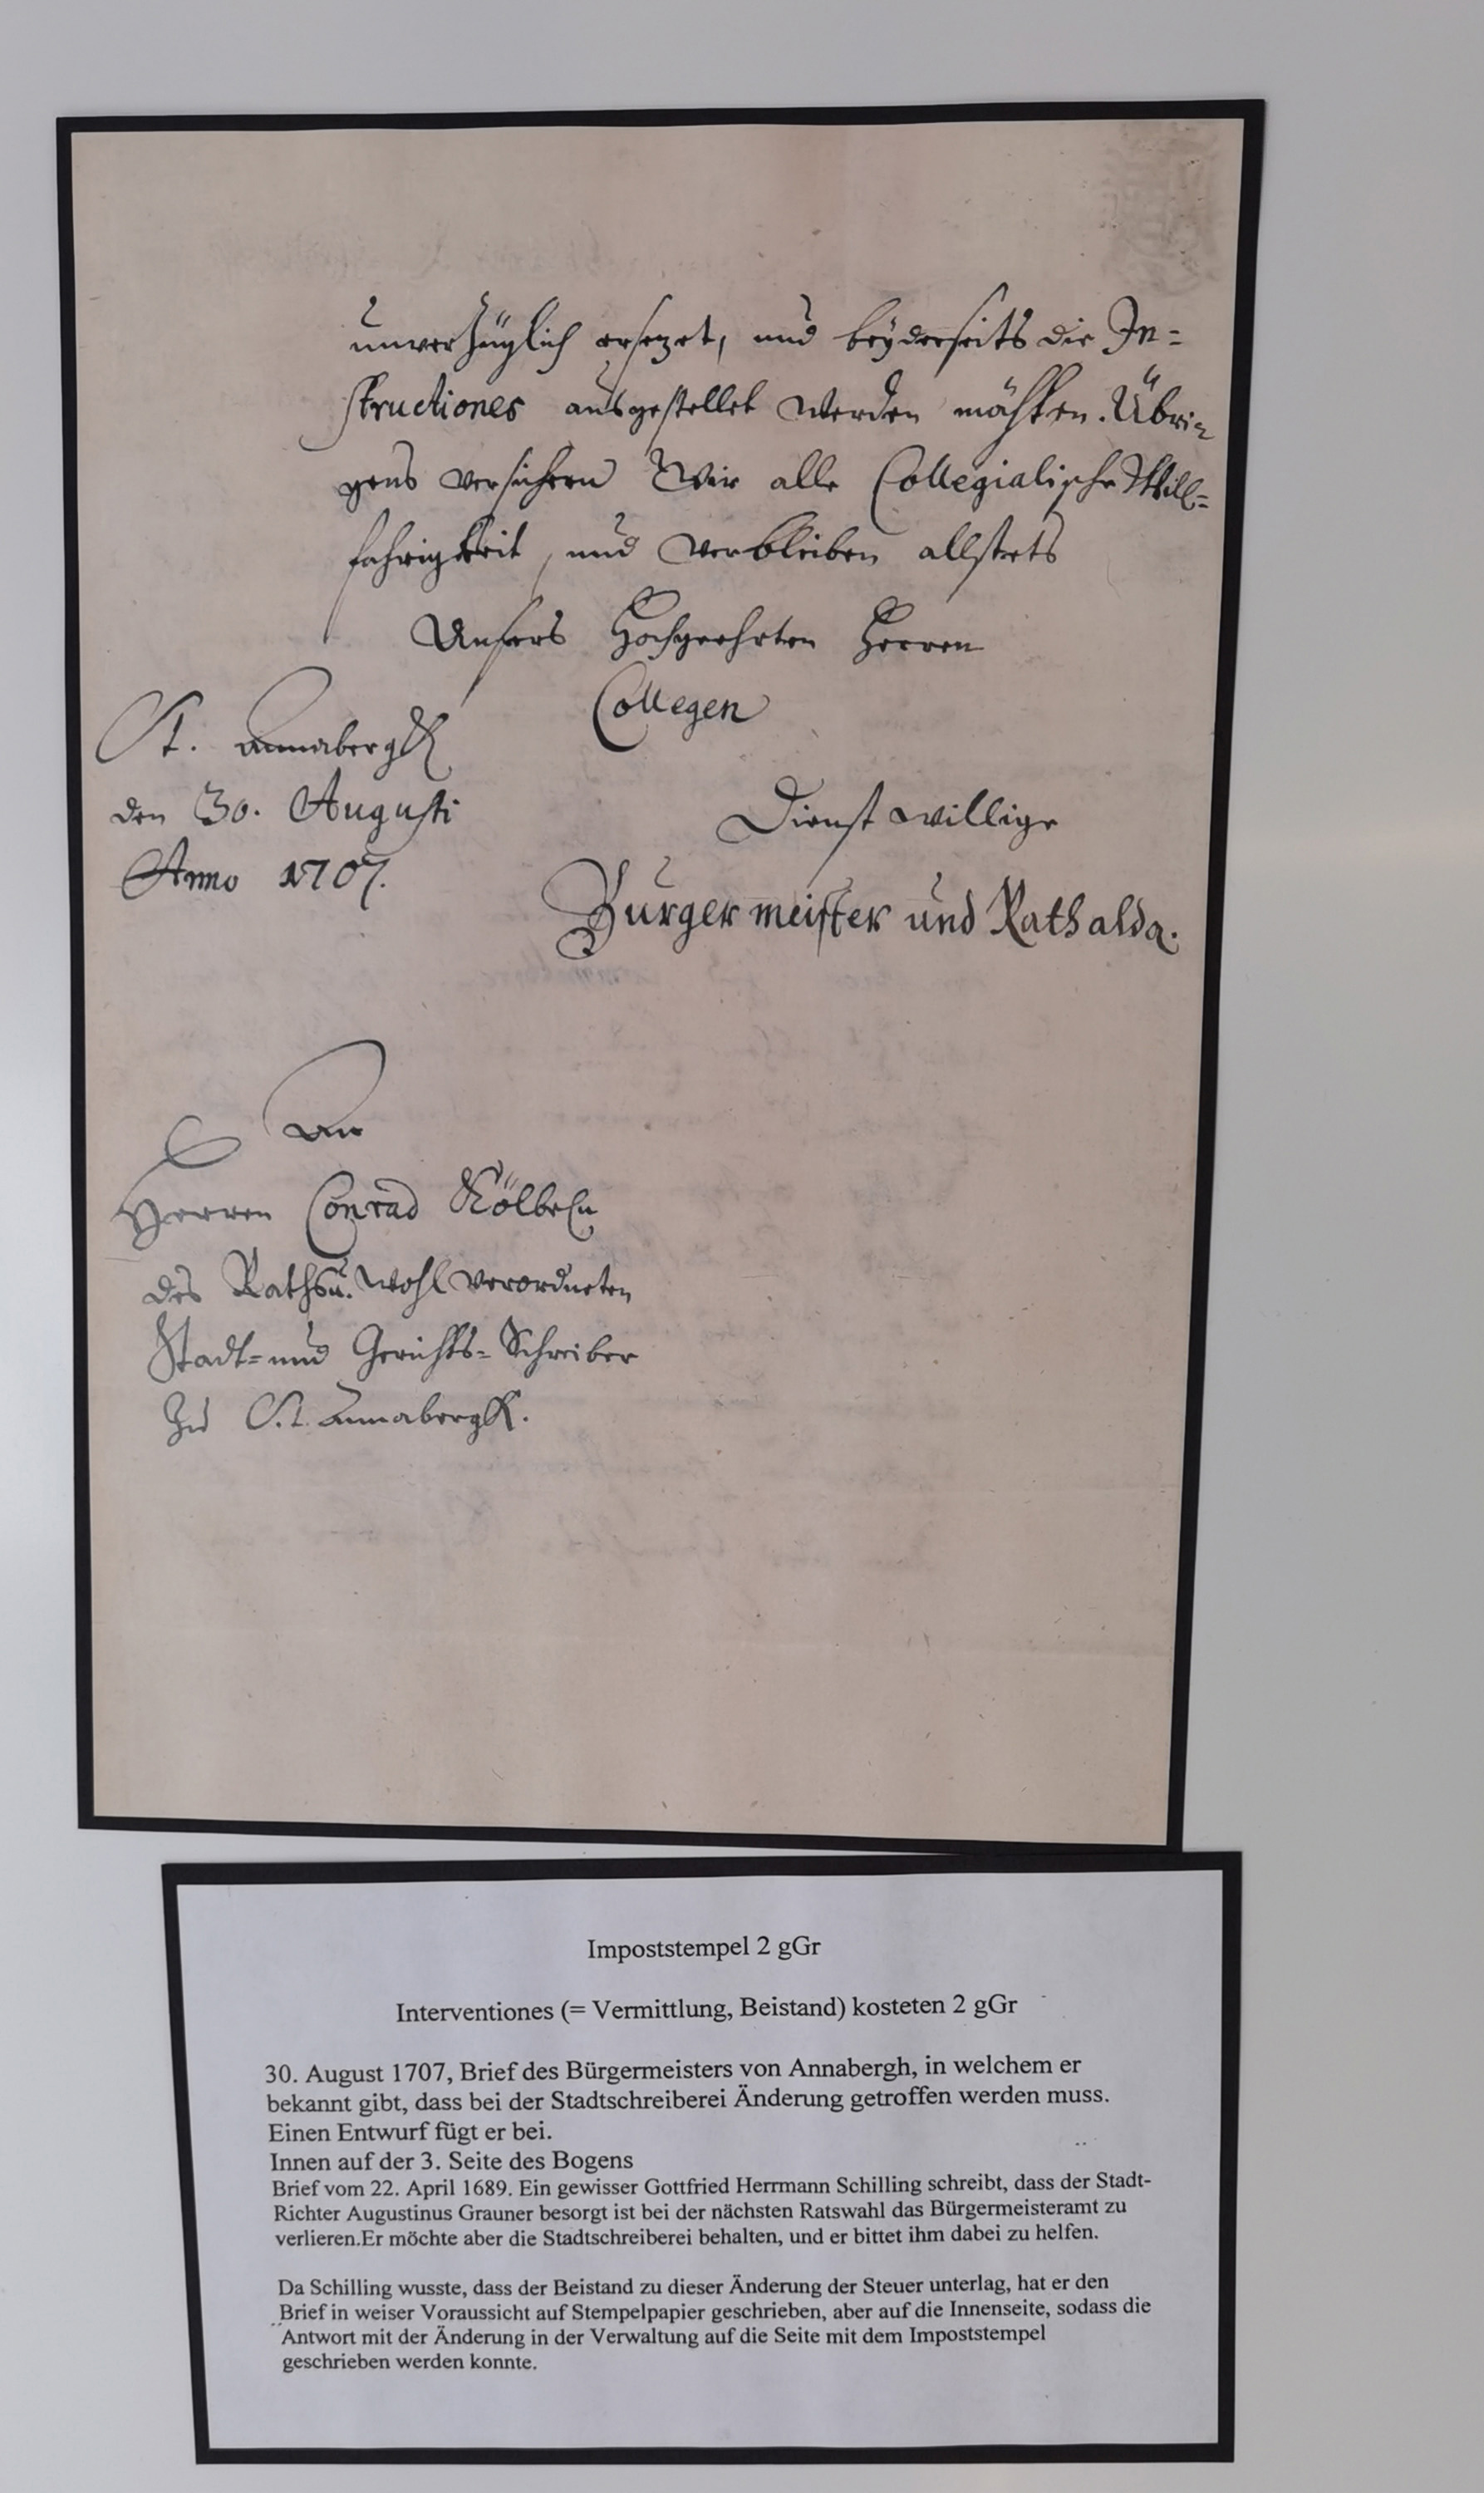 unverzüglich ersezet, und beyderseits die In=
structiones ausgestellet werden möchten. Übrin
gens versichern Wir alle Collegialische Will=
fahrigkeit, und verbleiben allstets
Unsers Hochgeehrten Herren
Collegen
St. Annabergk
den 30. Augusti
Anno 1707.
Dienstwillige
Bürgermeister und Rath alda.
An
Herren Conrad Kölbeln
des Raths u. wohlverordneten
Stadt= und Gerichts=Schreiber
zu St. Annabergk.
Impoststempel 2 gGr
Interventiones (= Vermittlung, Beistand) kosteten 2 gGr
30. August 1707, Brief des Bürgermeisters von Annabergh, in welchem er
bekannt gibt, dass bei der Stadtschreiberei Änderung getroffen werden muss.
Einen Entwurf fügt er bei.
Innen auf der 3. Seite des Bogens
Brief vom 22. April 1689. Ein gewisser Gottfried Herrmann Schilling schreibt, dass der Stadt-
Richter Augustinus Grauner besorgt ist bei der nächsten Ratswahl das Bürgermeisteramt zu
verlieren.Er möchte aber die Stadtschreiberei behalten, und er bittet ihm dabei zu helfen.
Da Schilling wusste, dass der Beistand zu dieser Änderung der Steuer unterlag, hat er den
Brief in weiser Voraussicht auf Stempelpapier geschrieben, aber auf die Innenseite, sodass die
Antwort mit der Änderung in der Verwaltung auf die Seite mit dem Impoststempel
geschrieben werden konnte.